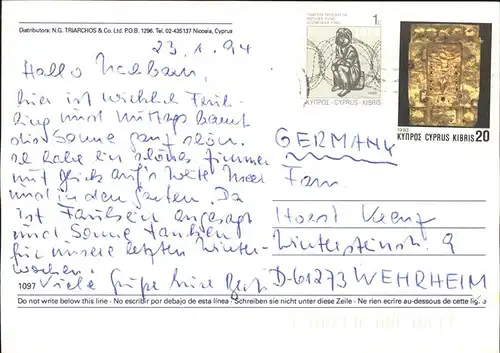 Distributors: N.G. TRIARCHOS & Co. Ltd. P.O.B. 1296. Tel. 02-435137 Nicosia, Cyprus
23.1.94
1c
ΚΥΠΡΟΣ - CYPRUS - KIBRIS
1993
ΚΥΠΡΟΣ CYPRUS KIBRIS 20
Hallo Nachbarn,
hier ist wirklich Früh-
ling und mittags brennt
die Sonne ganz schön.
Ich habe ein schönes Zimmer
mit Blick auf's weite Meer
und in den Garten. Da
ist Faulsein angesagt
und Sonne tanken
für unsere letzten Winter-
wochen.
Viele Grüße
GERMANY
Fam.
Horst
Wintersteinstr. 9
D-61273 WEHRHEIM
1097
Do not write below this line - No escribir por debajo de esta línea - Schreiben sie nicht unter diese Zeile - Ne rien ecrire au-dessous de cette ligne